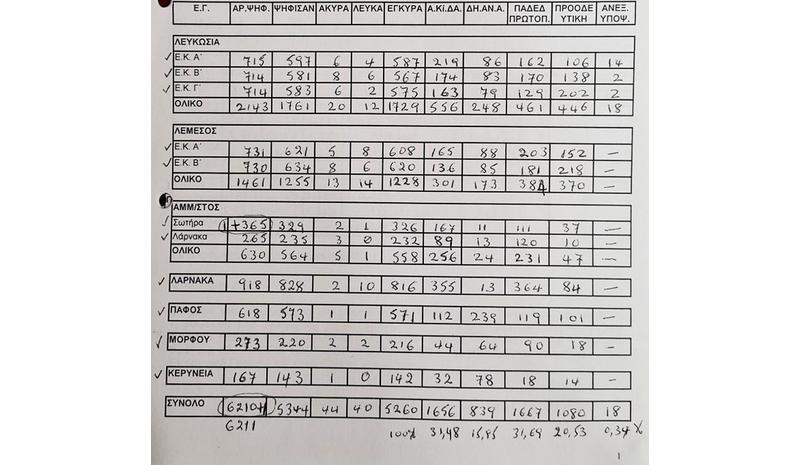 Ε.Γ. ΑΡ.ΨΗΦ. ΨΗΦΙΣΑΝ ΑΚΥΡΑ ΛΕΥΚΑ ΕΓΚΥΡΑ Α.ΚΙ.ΔΑ. ΔΗ.ΑΝ.Α. ΠΑΔΕΔ ΠΡΩΤΟΠ. ΠΡΟΟΔΕΥΤΙΚΗ ΑΝΕΞ. ΥΠΟΨ.
ΛΕΥΚΩΣΙΑ
Ε.Κ. Α΄ 715 597 6 4 587 219 86 162 106 14
Ε.Κ. Β΄ 714 581 8 6 567 174 83 170 138 2
Ε.Κ. Γ΄ 714 583 6 2 575 163 79 129 202 2
ΟΛΙΚΟ 2143 1761 20 12 1729 556 248 461 446 18
ΛΕΜΕΣΟΣ
Ε.Κ. Α΄ 731 621 5 8 608 165 88 203 152 —
Ε.Κ. Β΄ 730 634 8 6 620 136 85 181 218 —
ΟΛΙΚΟ 1461 1255 13 14 1228 301 173 384 370 —
ΑΜΜ/ΣΤΟΣ
Σωτήρα 1+365 329 2 1 326 167 11 111 37 —
Λάρνακα 265 235 3 0 232 89 13 120 10 —
ΟΛΙΚΟ 630 564 5 1 558 256 24 231 47 —
ΛΑΡΝΑΚΑ 918 828 2 10 816 355 13 364 84 —
ΠΑΦΟΣ 618 573 1 1 571 112 239 119 101 —
ΜΟΡΦΟΥ 273 220 2 2 216 44 64 90 18 —
ΚΕΡΥΝΕΙΑ 167 143 1 0 142 32 78 18 14 —
ΣΥΝΟΛΟ 6210+1 5344 44 40 5260 1656 839 1667 1080 18
6211 100% 31,48 15,95 31,69 20,53 0,34 %
1